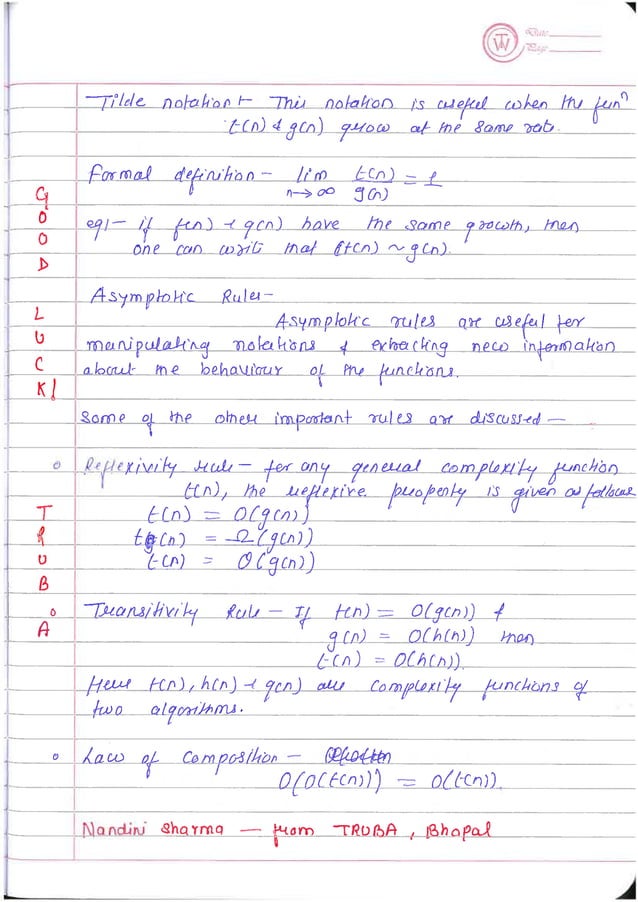 Date
Page
Tilde notation :- This notation is useful when the funⁿ
t(n) & g(n) grow at the same rate.
Formal definition - lim n→∞ t(n)/g(n) = 1
eg:- if f(n) & g(n) have the same growth, then
one can write that (t(n) ~ g(n).
Asymptotic Rules -
Asymptotic rules are useful for
manipulating notations & extracting new information
about the behaviour of the functions.
Some of the other important rules are discussed -
Reflexivity rule - for any general complexity function
t(n), the reflexive property is given as follows
t(n) = O(g(n))
t(n) = Ω(g(n))
t(n) = Θ(g(n))
Transitivity Rule - If t(n) = O(g(n)) &
g(n) = O(h(n)) then
t(n) = O(h(n)).
Here t(n), h(n) & g(n) are complexity functions of
two algorithms.
Law of composition -
O(O(t(n))) = O(t(n)).
Nandini Sharma - from TRUBA, Bhopal
GOOD
LUCK!
TRUBA